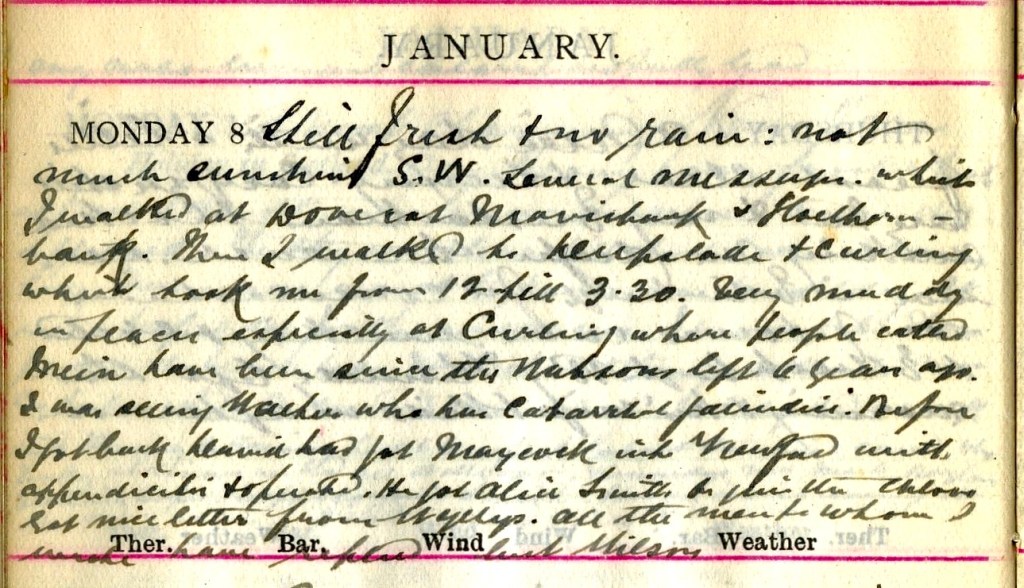 JANUARY.
MONDAY 8 Still fresh & no rain: not
much sunshine S.W. Several messages which
I walked at Dovecot &
bank. Then I walked to & Curling
which took me from 12 till 3.30. Very muddy
in places especially at Curling where people called
have been since the left 6 years ago.
I was seeing who has Catarrhal jaundice. Before
I got back had got Maycock into with
appendicitis & operated. He got Alice Smith to give the chloro
Got nice letter from all the men to whom I
wrote have replied but Wilson
Ther. Bar. Wind Weather